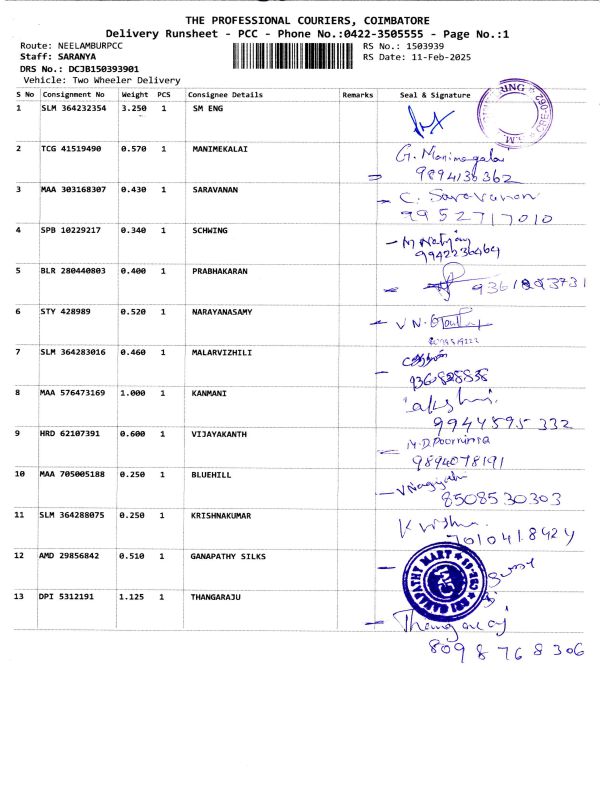 THE PROFESSIONAL COURIERS, COIMBATORE
Delivery Runsheet - PCC - Phone No.:0422-3505555 - Page No.:1
Route: NEELAMBURPCC
RS No.: 1503939
Staff: SARANYA
RS Date: 11-Feb-2025
DRS No.: DCJB150393901
Vehicle: Two Wheeler Delivery
S No Consignment No Weight PCS Consignee Details Remarks Seal & Signature
1 SLM 364232354 3.250 1 SM ENG
2 TCG 41519490 0.570 1 MANIMEKALAI G. Manimegalai
9894138362
3 MAA 303168307 0.430 1 SARAVANAN C. Saravanan
9952717010
4 SPB 10229217 0.340 1 SCHWING
9942236464
5 BLR 280440803 0.400 1 PRABHAKARAN
6 STY 428989 0.520 1 NARAYANASAMY V N.
7 SLM 364283016 0.460 1 MALARVIZHILI
8 MAA 576473169 1.000 1 KANMANI
9944595332
9 HRD 62107391 0.600 1 VIJAYAKANTH M.D.Poornima
9894078191
10 MAA 705005188 0.250 1 BLUEHILL
8508530303
11 SLM 364288075 0.250 1 KRISHNAKUMAR Krishna.
7010418424
12 AMD 29856842 0.510 1 GANAPATHY SILKS
SRI GANAPATHY MART
13 DPI 5312191 1.125 1 THANGARAJU Thangaraj
8098768306